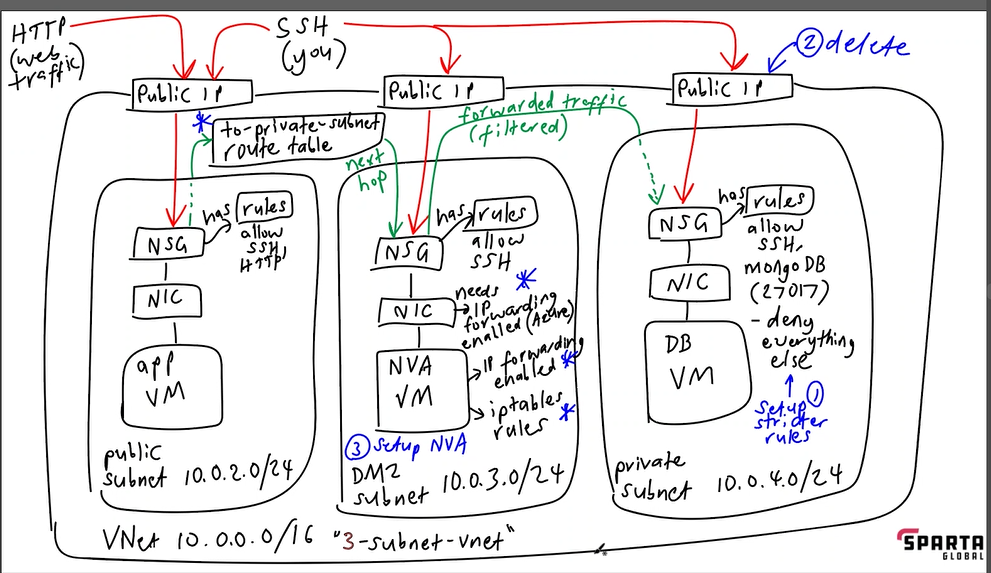 HTTP
(web
traffic)
SSH
(you)
② delete
Public IP
Public IP
Public IP
*
to-private-subnet
route table
forwarded traffic
(filtered)
next
hop
NSG
has
rules
allow
SSH,
HTTP
NIC
app
VM
public
subnet 10.0.2.0/24
NSG
has
rules
allow
SSH
NIC
needs *
IP
forwarding
enabled (Azure)
NVA
VM
IP forwarding
enabled *
iptables *
rules
③ setup NVA
DMZ
subnet 10.0.3.0/24
NSG
has
rules
allow
SSH,
mongoDB
(27017)
- deny
everything
else
NIC
DB
VM
setup ①
stricter
rules
private
subnet 10.0.4.0/24
VNet 10.0.0.0/16 "3-subnet-vnet"
SPARTA
GLOBAL